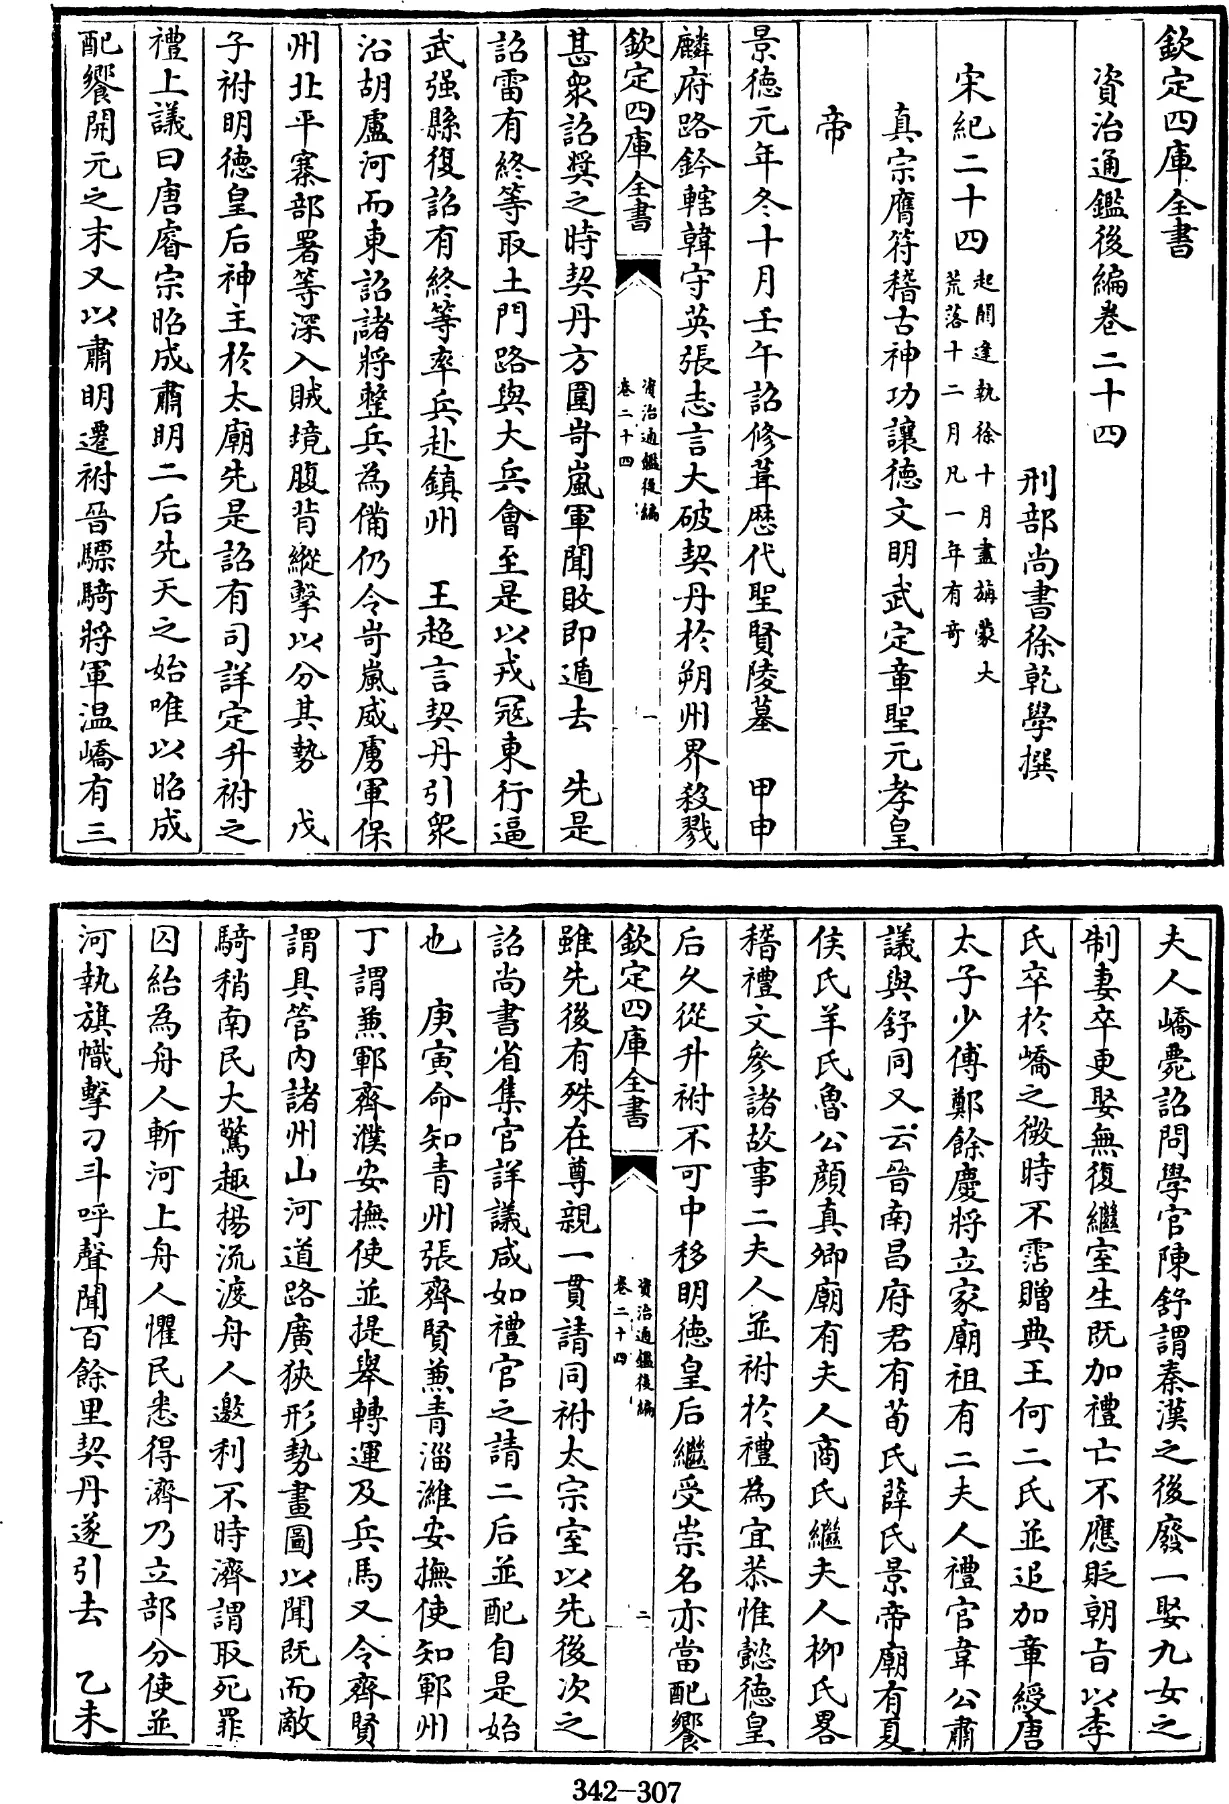 欽定四庫全書
資治通鑑後編卷二十四
刑部尚書徐乾學撰
宋紀二十四起閼逢執徐十月盡旃蒙大
荒落十二月凡一年有奇
真宗膺符稽古神功讓德文明武定章聖元孝皇
帝
景德元年冬十月壬午詔修葺歷代聖賢陵墓　甲申
麟府路鈐轄韓守英張志言大破契丹於朔州界殺戮
欽定四庫全書
資治通鑑後編
卷二十四
一
甚衆詔奬之時契丹方圍岢嵐軍聞敗即遁去　先是
詔雷有終等取土門路與大兵會至是以戎冦東行逼
武强縣復詔有終等率兵赴鎮州　王超言契丹引衆
沿胡盧河而東詔諸將整兵為備仍令岢嵐威虜軍保
州北平寨部署等深入賊境腹背縱擊以分其勢　戊
子祔明德皇后神主於太廟先是詔有司詳定升祔之
禮上議曰唐睿宗昭成肅明二后先天之始唯以昭成
配饗開元之末又以肅明遷祔晉驃騎將軍温嶠有三
夫人嶠薨詔問學官陳舒謂秦漢之後廢一娶九女之
制妻卒更娶無復繼室生既加禮亡不應貶朝旨以李
氏卒於嶠之微時不霑贈典王何二氏並追加章綬唐
太子少傅鄭餘慶將立家廟祖有二夫人禮官韋公肅
議與舒同又云晉南昌府君有荀氏薛氏景帝廟有夏
侯氏羊氏魯公顔真卿廟有夫人商氏繼夫人柳氏畧
稽禮文參諸故事二夫人並祔於禮為宜恭惟懿德皇
后久從升祔不可中移明德皇后繼受崇名亦當配饗
欽定四庫全書
資治通鑑後編
卷二十四
二
雖先後有殊在尊親一貫請同祔太宗室以先後次之
詔尚書省集官詳議咸如禮官之請二后並配自是始
也　庚寅命知青州張齊賢兼青淄濰安撫使知鄆州
丁謂兼鄆齊濮安撫使並提舉轉運及兵馬又令齊賢
謂具管内諸州山河道路廣狹形勢畫圖以聞既而敵
騎稍南民大驚趣揚流渡舟人邀利不時濟謂取死罪
囚紿為舟人斬河上舟人懼民悉得濟乃立部分使並
河執旗幟擊刁斗呼聲聞百餘里契丹遂引去　乙未
342-307